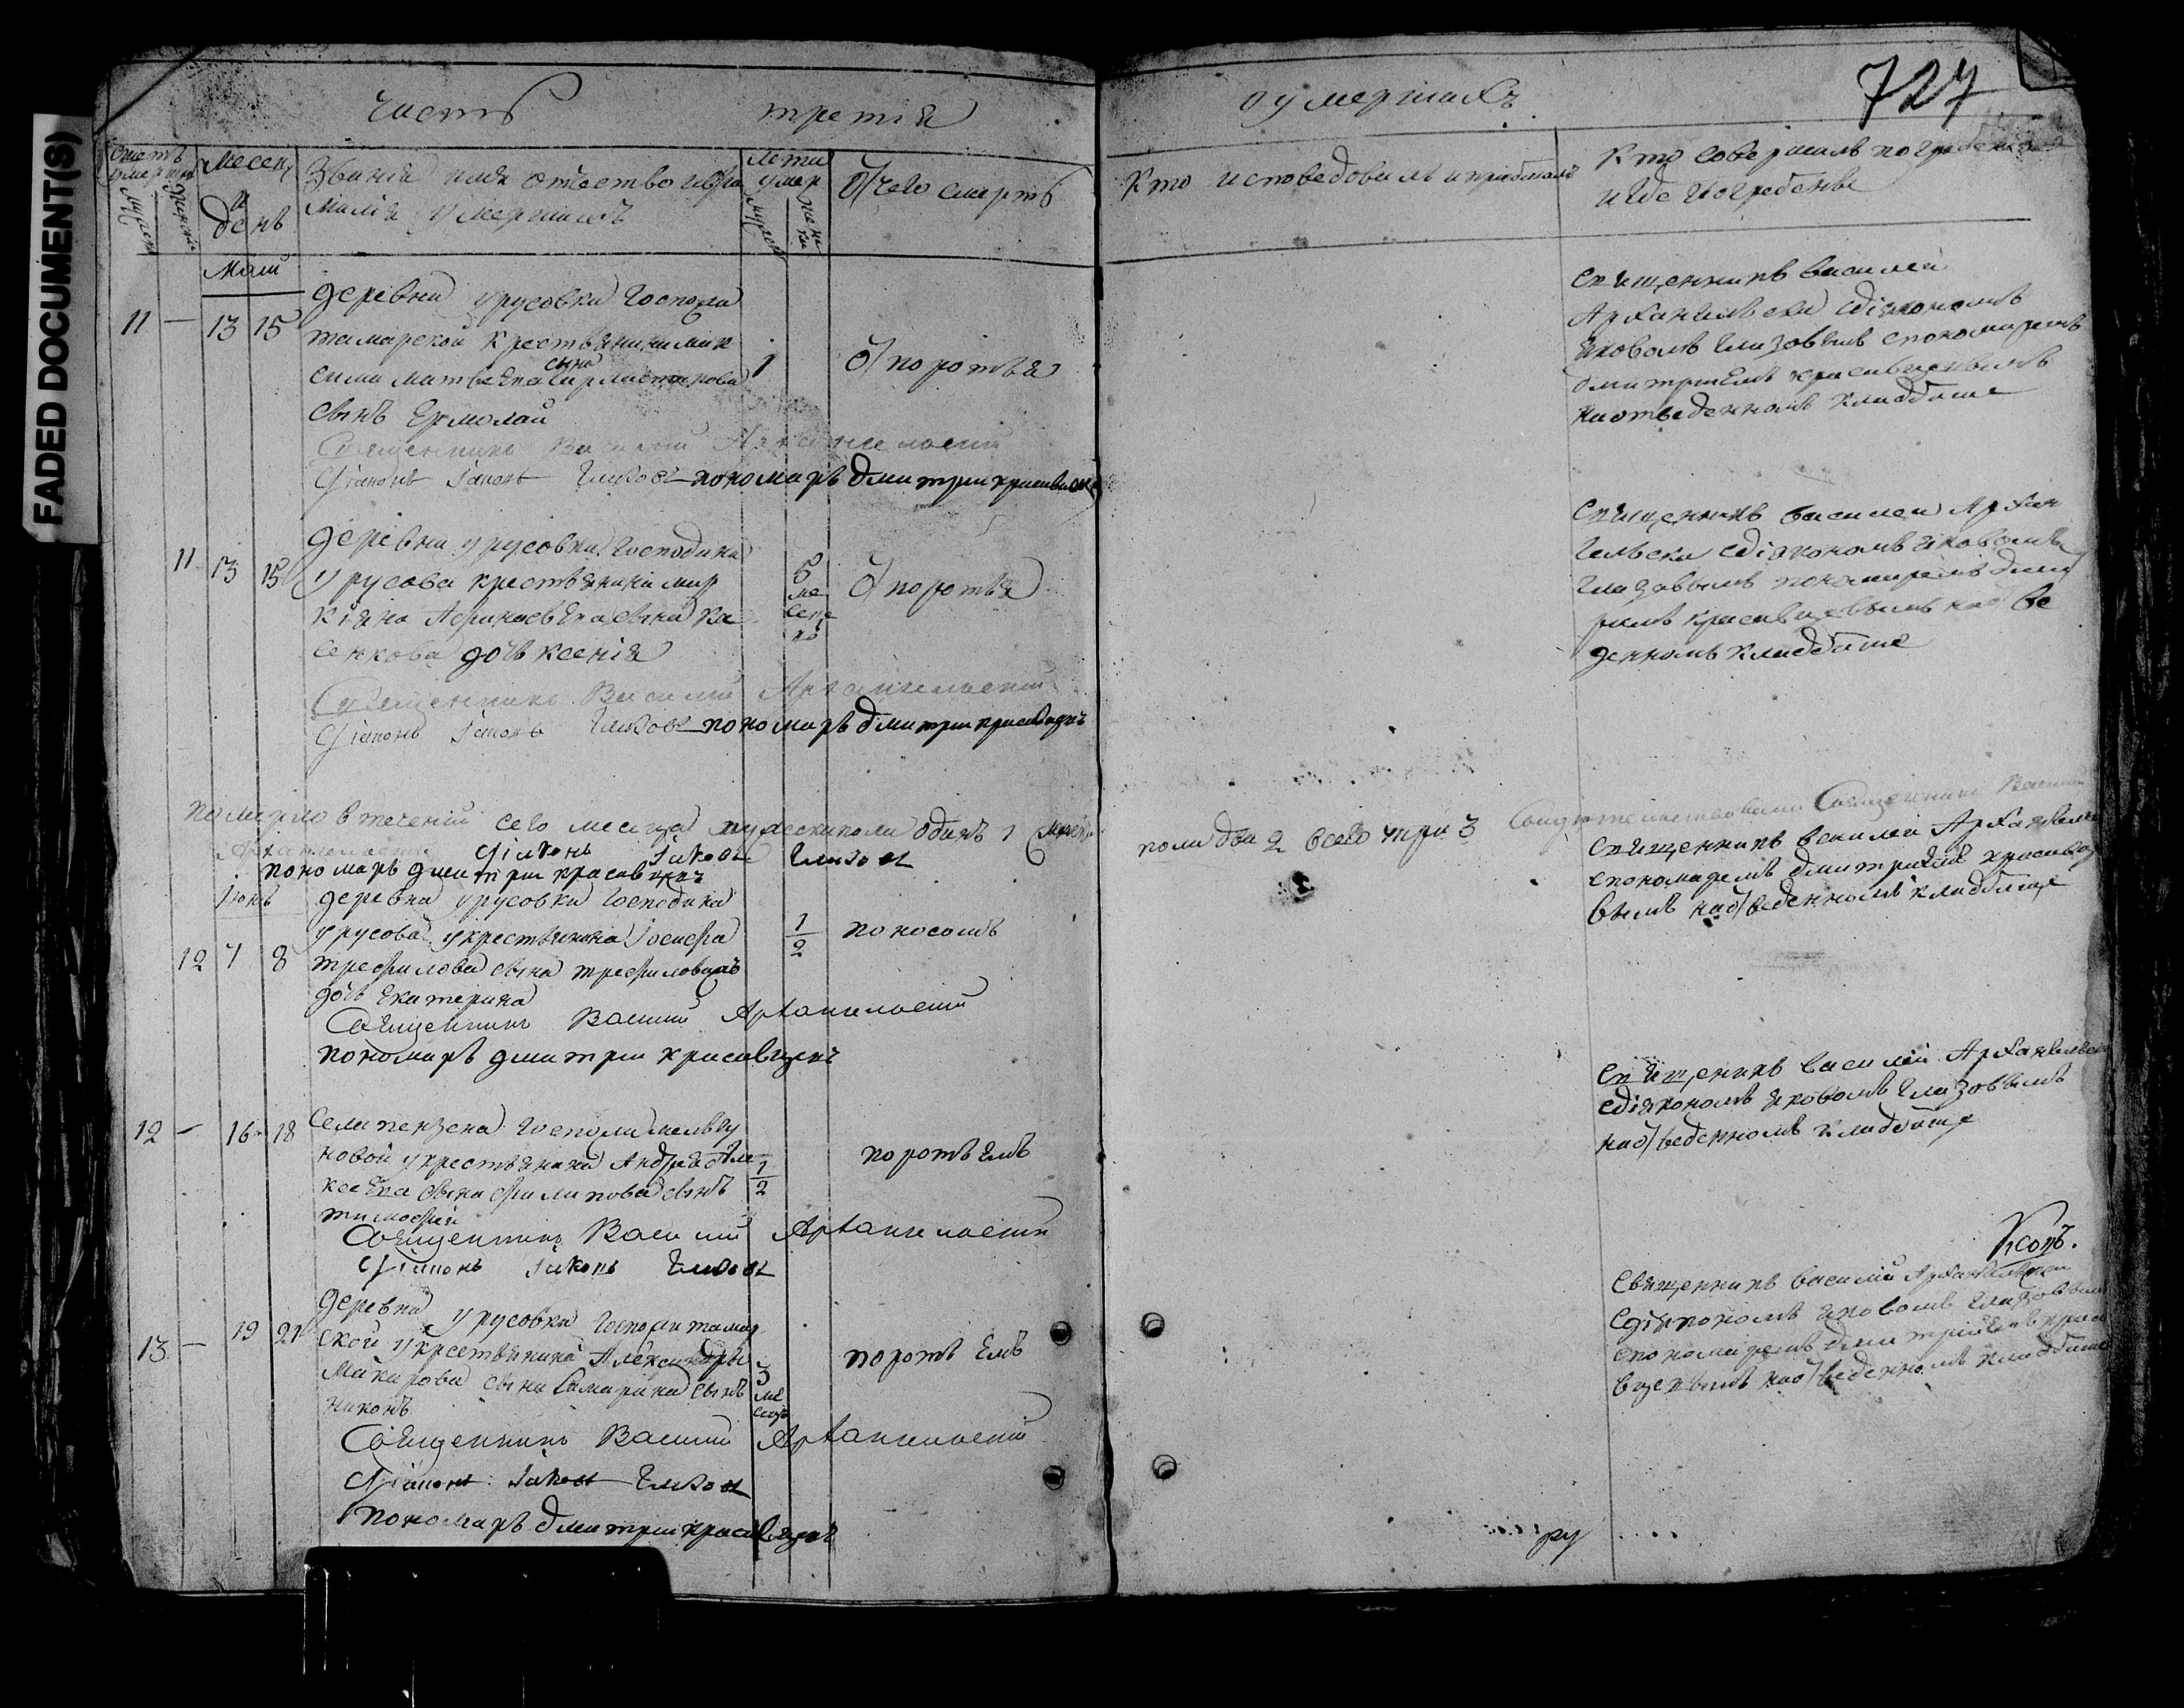 FADED DOCUMENT(S)
часть третія
о умершихъ
727
Месецъ
и
день
Званія имя отчество
милія умершихъ
лети
умер
От чего смерть
Кто исповедовалъ и приобщалъ
Кто совершалъ погребеніе
и где погребены
Маій
11 — 13 15
деревни урусовки Госпожи
тамарской крестьянина мак
сима матвеева сына
сынъ Ермолай
1
От поротья
Священникъ Василий Архангельский
Діаконъ Іаковъ Глазовъ пономарь дмитрий красавцевъ
священникъ василей
Архангельски с діякономъ
яковомъ глазовымъ с пономаремъ
дмитриемъ красавцевымъ
на отведенномъ кладбище
11 13 15
деревни урусовки Господина
урусова крестьянина мар
кіяна Афанасьева сына ка
сенкова дочь ксенія
5
ме
сецо
въ
От поротья
Священникъ Василий Архангельский
Діаконъ Іаковъ Глазовъ пономарь дмитрий красавцевъ
священникъ василей Архан
гельски с діякономъ яковомъ
глазовымъ пономаремъ дми
риемъ красавцевымъ на от ве
денномъ кладбище
померло в течении сего месяца мужеска пола одинъ 1 женска
пола два 2 всего три 3 Свидетельствовали Священникъ Василий
Архангельский Діаконъ Іаковъ Глазовъ
пономарь дмитрий красавцевъ
Іюнь
12 7 8
деревни урусовки господина
урусова у крестьянина Іосифа
трефилова сына трефиловыхъ
дочь Екатерина
1/2
поносомъ
Священникъ Василий Архангельский
пономарь дмитрий красавцевъ
священникъ василей Архангельски
с пономаремъ дмитриемъ красавце
вымъ на отведенномъ кладбище
12 — 16 18
села пензена Госпожи мельгу
новой у крестьянина Андрея Але
ксеева сына филипова сынъ
тимофей
1/2
поротьемъ
Священникъ Василий Архангельский
Діаконъ Іаковъ Глазовъ
священникъ василей Архангельски
с діякономъ яковомъ глазовымъ
на отведенномъ кладбище
13 — 19 21
деревни урусовки Госпожи тамар
ской у крестьянина Александры
макарова сына самарина сынъ
никонъ
3
ме
сецъ
поротьемъ
Священникъ Василий Архангельский
Діаконъ Іаковъ Глазовъ
пономарь дмитрий красавцевъ
священникъ василий Архангельски
с діякономъ яковомъ глазовымъ
с пономаремъ дмитриемъ краса
вцевымъ на отведенномъ кладбище
ру